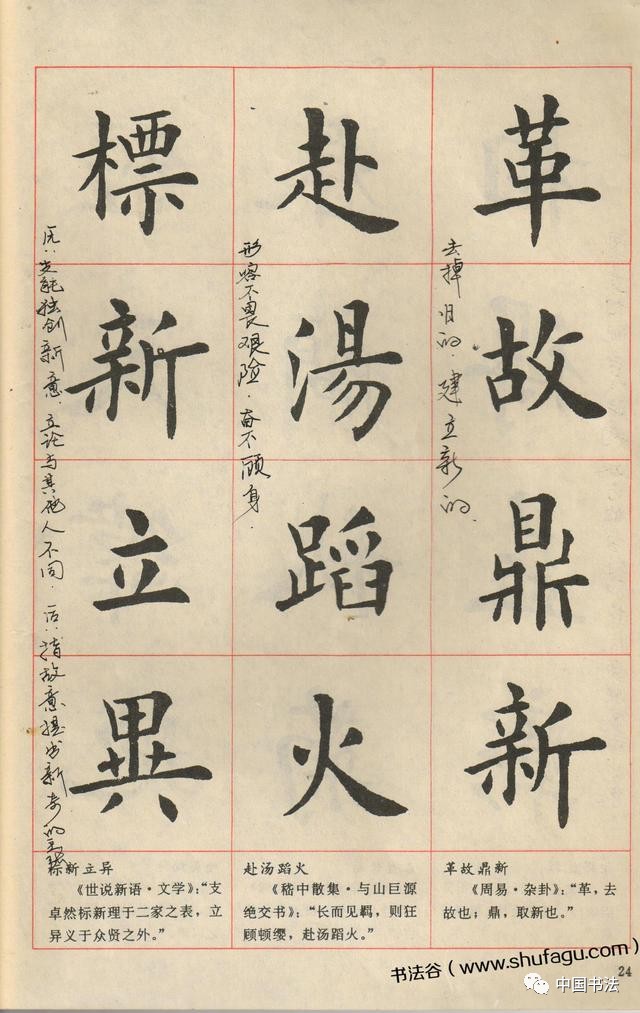 革故鼎新
去掉旧的.建立新的.
赴湯蹈火
形容不畏艰险.奋不顾身.
標新立異
能独创新意.立论与其他人不同.后:指故意提出新奇的主张
革故鼎新
《周易·杂卦》：“革，去
故也；鼎，取新也。”
赴汤蹈火
《嵇中散集·与山巨源
绝交书》：“长而见羁，则狂
顾顿缨，赴汤蹈火。”
标新立异
《世说新语·文学》：“支
卓然标新理于二家之表，立
异义于众贤之外。”
书法谷（www.shufagu.com）
24
中国书法